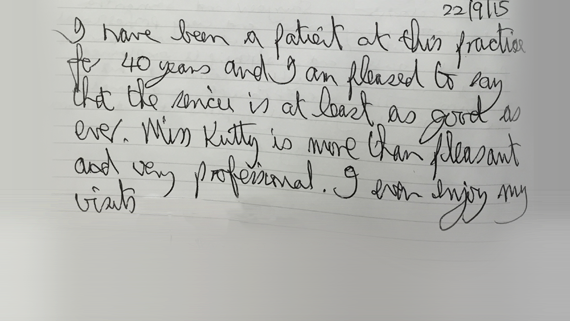 22/9/15
I have been a patient at this practice
for 40 years and I am pleased to say
that the service is at least as good as
ever. Miss Kutty is more than pleasant
and very professional. I even enjoy my
visits